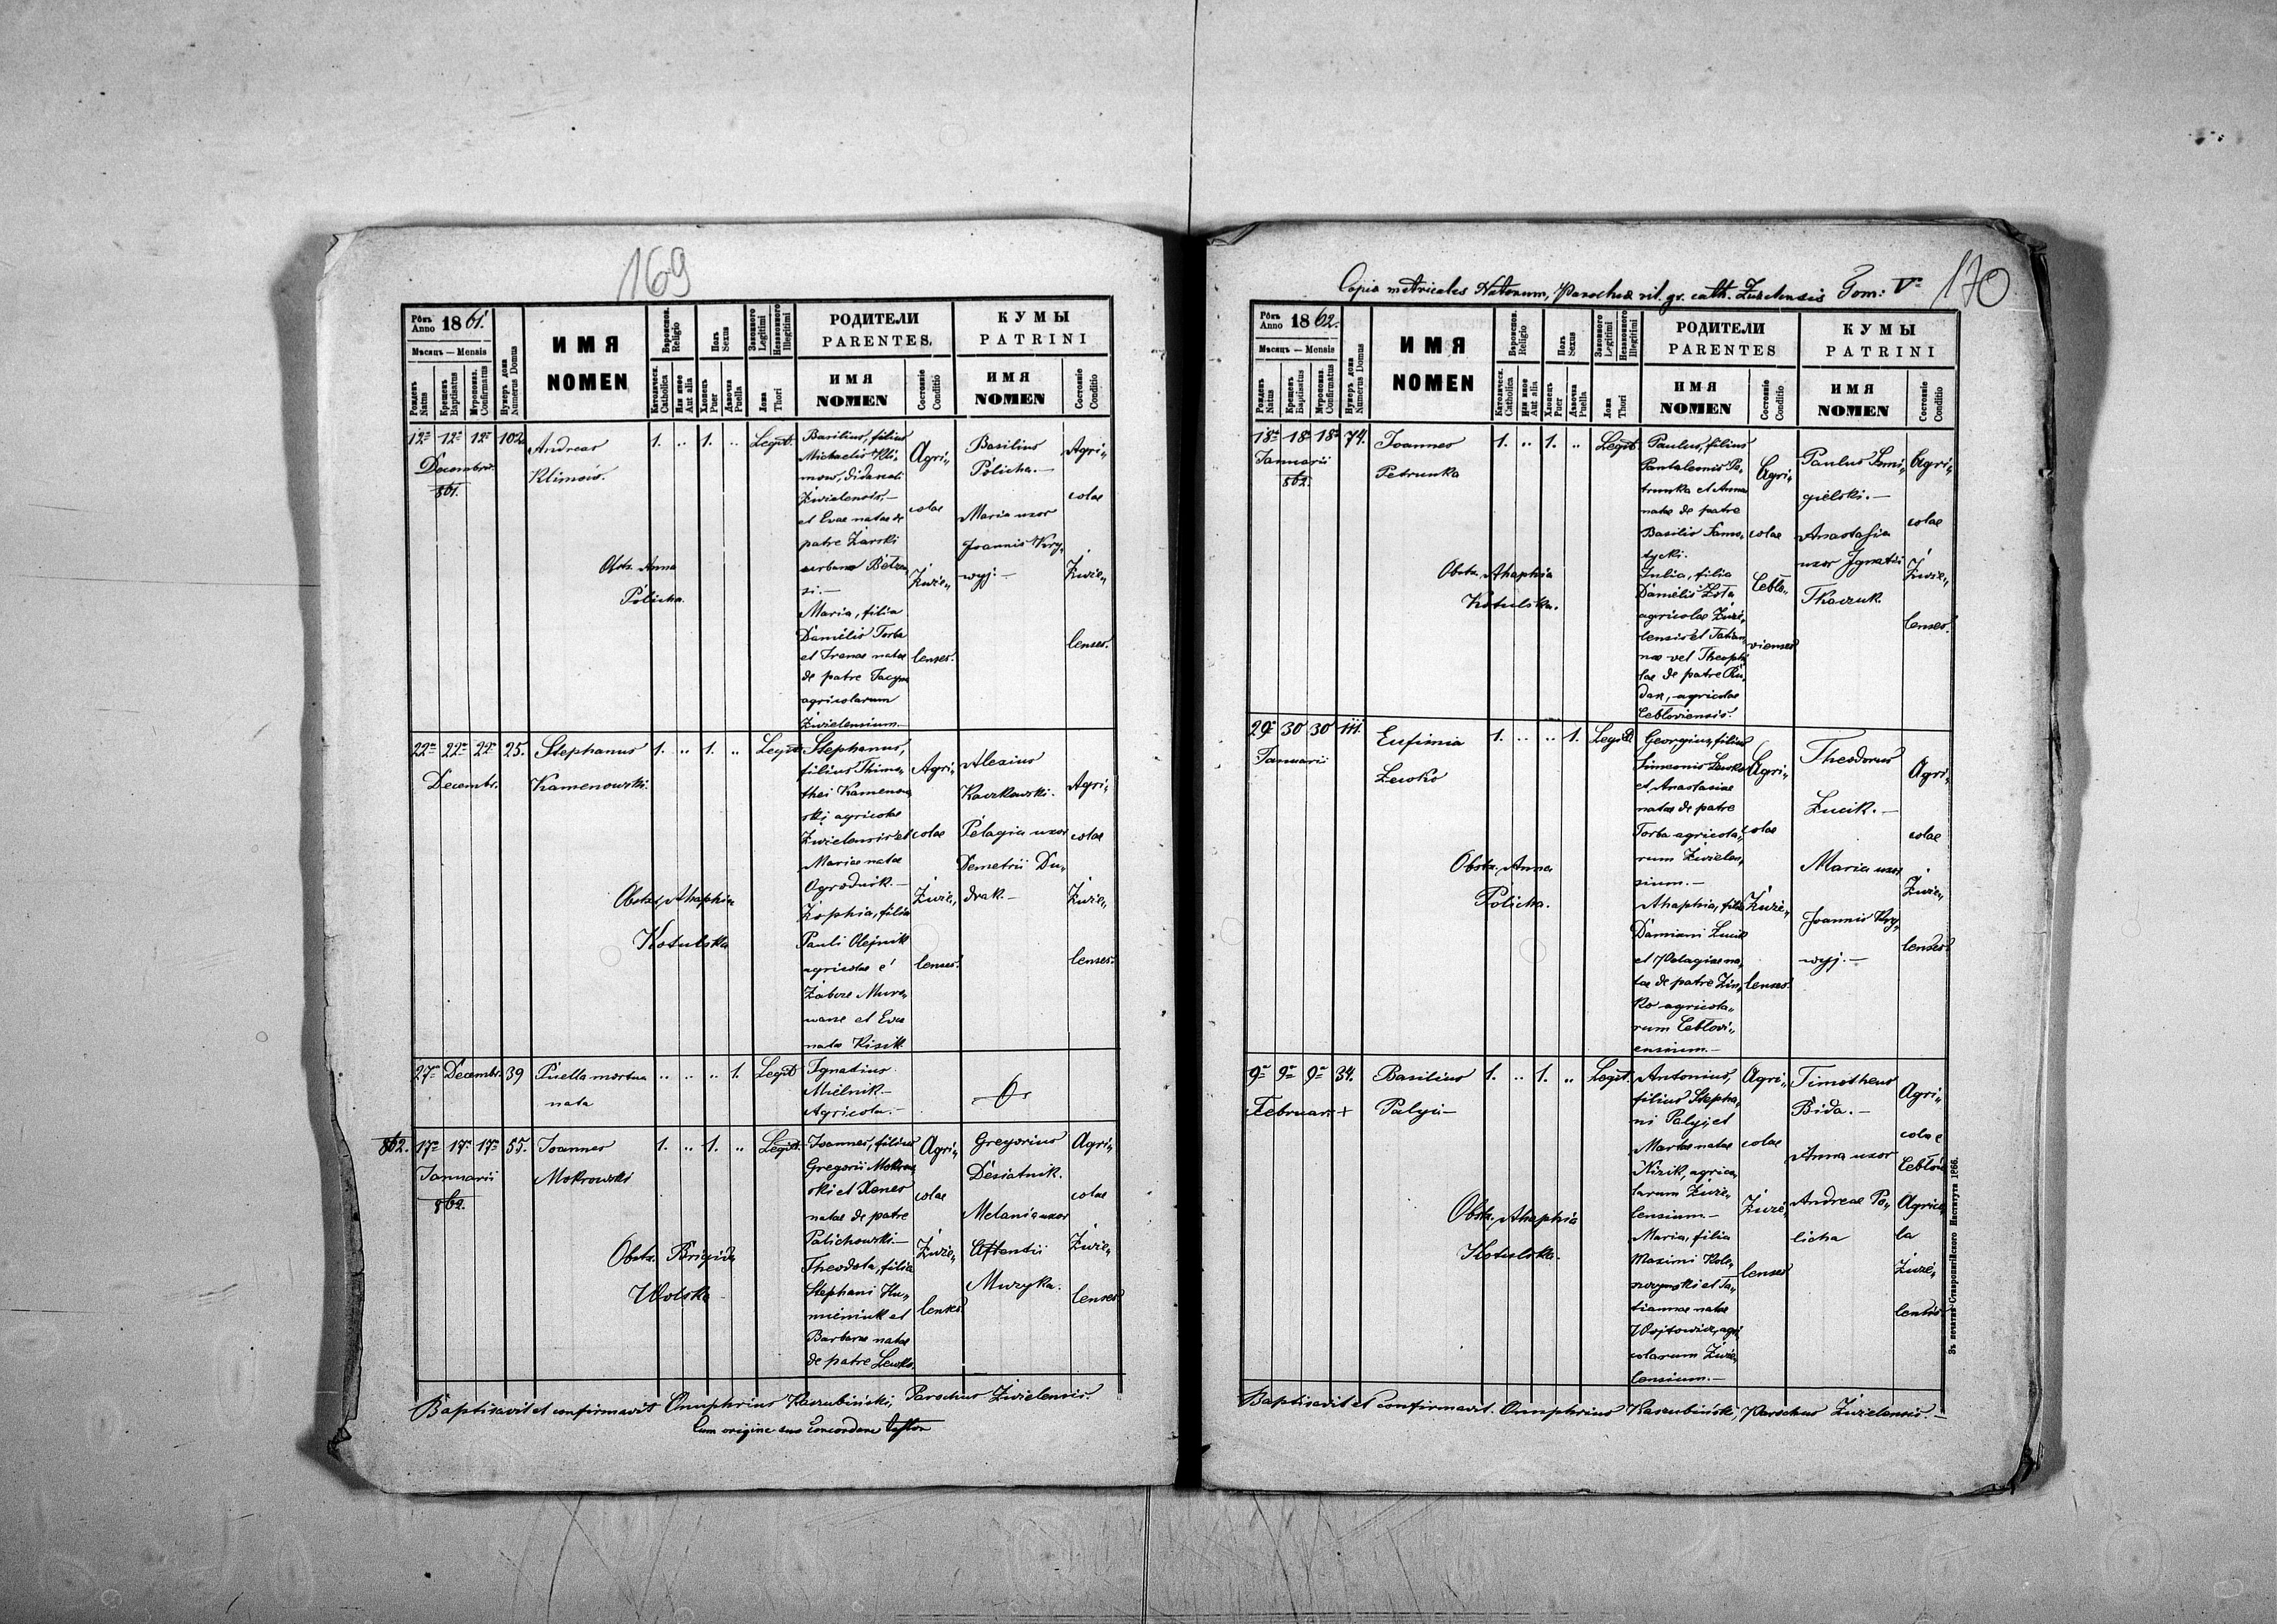 169
Рôкъ Anno 1861.
Мѣсяцъ — Mensis
Рожденъ Natus
Крещенъ Baptisatus
Мѵропомаз. Confirmatus
Нумеръ дома Numerus Domus
ИМЯ NOMEN
Вѣроиспов. Religio
Католическ. Catholica
Или иное Aut alia
Полъ Sexus
Хлопецъ Puer
Дѣвочка Puella
Законного Legitimi
Незаконного Illegitimi
Ложа Thori
РОДИТЕЛИ PARENTES.
ИМЯ NOMEN
Состояніе Conditio
КУМЫ PATRINI
ИМЯ NOMEN
Состояніе Conditio
12a 12a 12a 102.
Decembris
861.
Andreas
Klimow.
Obstx. Anna
Policha.
1. .. 1. .. Legit.
Basilius, filius
Michaelis Kli„
mow, didascali
Żwielensis, —
et Evae natae de
patre Żarski
Maria, filia
Danielis Torba
et Irenae natae
de patre Jacyna
agricolarum
Żwielensium.—
Agri„
colae
Żwie„
lenses.
Basilius
Policha.—
Maria uxor
Joannis Kry„
wyj.—
Agri„
colae
Żwie„
lenses.
22a 22a 22a 25.
Decembr.
Stephanus
Kamenowski.
Obstx. Ahaphia
Kotulska
1. .. 1. .. Legit.
Stephanus,
filius Thimo„
thei Kamenow„
ski agricolae
Żwielensis et
Mariae natae
Ogrodnik.—
Zophia, filia
Pauli Olejnik
agricolae e
Zabcze Muro„
wane et Evae
natae Kisik
Agri„
colae
Żwie„
lenses.
Alexius
Kaczkowski.
Pelagia uxor
Demetrii Du„
drak.—
Agri„
colae
Żwie„
lenses.
27a Decembr. 39
Puella mortua
nata
.. .. .. 1. Legit.
Ignatius
Mielnik.—
Agricola.—
862. 17a 17a 17a 55.
Januarii
862.
Joannes
Mokrowski
Obstx. Brigida
Wolska
1. .. 1. .. Legit.
Joannes, filius
Gregorii Mokrow„
ski et Xeniae
natae de patre
Palichowski.—
Theodota, filia
Stephani Ku„
mieniuk et
Barbarae natae
de patre Lewko.
Agri„
colae
Żwie„
lenses
Gregorius
Desiatnik.
Melania uxor
Muzyka.
Agri„
colae
Żwie„
lenses
Baptisavit et confirmavit Onuphrius Kaszubiński, Parochus Żwielensis.
Cum origine suo concordare testor
Copia metricales Natorum, Parochiae rit. gr. cath. Żużelensis Tom: V
170
Рôкъ Anno 1862.
Мѣсяцъ — Mensis
Рожденъ Natus
Крещенъ Baptisatus
Мѵропомаз. Confirmatus
Нумеръ дома Numerus Domus
ИМЯ NOMEN
Вѣроиспов. Religio
Католическ. Catholica
Или иное Aut alia
Полъ Sexus
Хлопецъ Puer
Дѣвочка Puella
Законного Legitimi
Незаконного Illegitimi
Ложа Thori
РОДИТЕЛИ PARENTES
ИМЯ NOMEN
Состояніе Conditio
КУМЫ PATRINI
ИМЯ NOMEN
Состояніе Conditio
18a 18a 18a 74.
Januarii
862.
Joannes
Petrunka
Obstx. Ahaphia
Kotulska.
1. .. 1. .. Legit.
Paulus, filius
Pantaleonis Pe„
trunka et Anna
natae de patre
Basilio Samo„
tycki.
Julia, filia
Danielis Zota
agricolae Żuże„
lensis et Tatian„
nae vel Theophi„
lae de patre Ru„
dan, agricolae
Cebloviensis.
Agri„
colae
Ceblo„
vienses
Paulus Smi„
gielski.—
Anastasia
uxor Ignatii
Tkaczuk.
Agri„
colae
Żwie„
lenses.
29a 30 30 111.
Januarii
Eufimia
Lewko
Obstx. Anna
Policha.
1. .. .. 1. Legit.
Georgius, filius
Simeonis Lewko
et Anastasiae
natae de patre
Torba agricola„
rum Żwielen„
sium.—
Ahaphia, filia
Damiani Lucik
et Pelagiae na„
tae de patre Zin„
ko agricola„
rum Ceblovi„
ensium.—
Agri„
colae
Żuże„
lenses.
Theodorus
Lucik.—
Maria uxor
Joannis Kry„
wyj.—
Agri„
colae
Żwie„
lenses
9a 9a 9a 34.
Februar. +
Basilius
Palyi—
Obstx. Ahaphia
Kotulska.
1. .. 1. .. Legit.
Antonius,
filius Stepha„
ni Palyj et
Martae natae
Nizik, agrico„
larum Żuże„
lensium.—
Maria, filia
Maximi Kole„
et Ta„
tiannae natae
Wojtowicz, agri„
colarum Żuże„
lensium.—
Agri„
colae
Żuże„
lenses
Timotheus
Bida.—
Anna uxor
Andreae Po„
licha
Agri„
colae
Ceblov.
Agrico„
la
Żuże„
lensis
Baptisavit et confirmavit. Onuphrius Kaszubiński, Parochus Żużelensis.—
Зъ печатни Ставропигійского Института 1866.